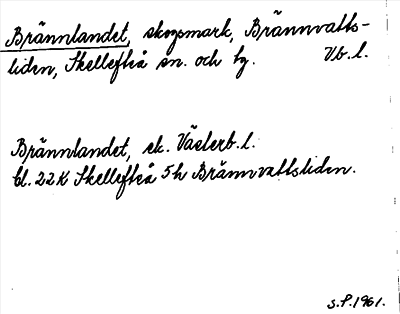 Brännlandet, skogsmark, Brännvatts-
liden, Skellefteå sn. och tg. Vb.l.
Brännlandet, sk. Västerb.l.
bl. 22K Skellefteå 5h Brännvattsliden.
S.P.1961.